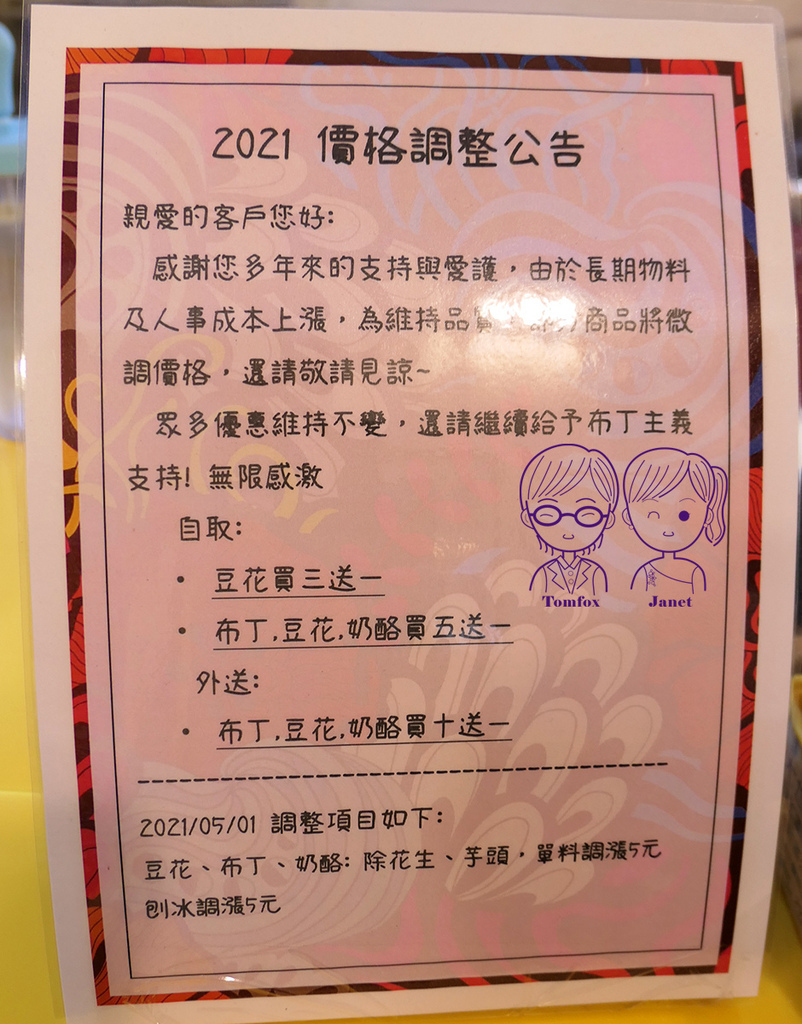 2021 價格調整公告
親愛的客戶您好:
感謝您多年來的支持與愛護，由於長期物料
及人事成本上漲，為維持品質 商品將微
調價格，還請敬請見諒~
眾多優惠維持不變，還請繼續給予布丁主義
支持! 無限感激
自取:
• 豆花買三送一
• 布丁,豆花,奶酪買五送一
外送:
• 布丁,豆花,奶酪買十送一
Tomfox Janet
2021/05/01 調整項目如下:
豆花、布丁、奶酪: 除花生、芋頭，單料調漲5元
刨冰調漲5元